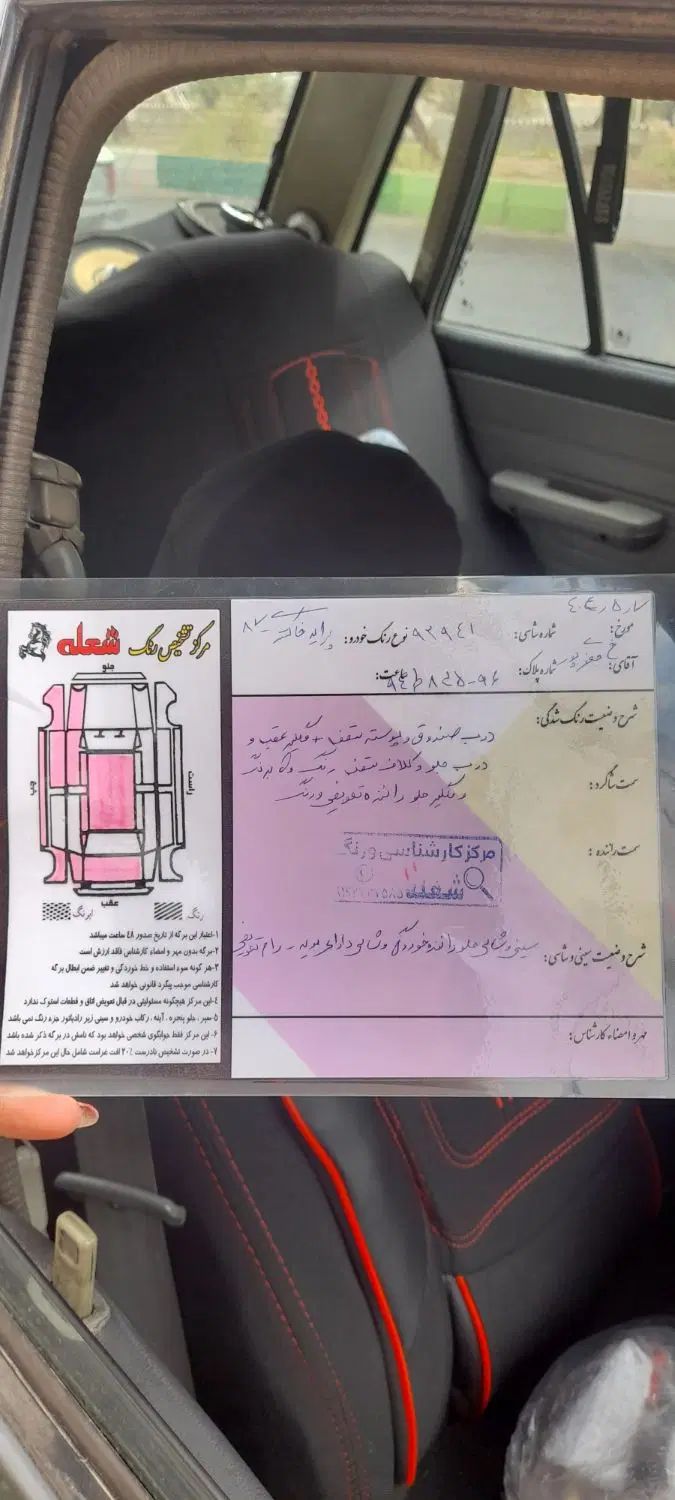 مرکز تشخیص رنگ شعله
جلو
چپ
راست
عقب
رنگ
ابرنگ
۱-اعتبار این برگه از تاریخ صدور ٤٨ ساعت میباشد
۲-برگه بدون مهر و امضاء کارشناس فاقد ارزش است
۳-هر گونه سوء استفاده و خط خوردگی و تغییر ضمن ابطال برگه
کارشناسی موجب پیگرد قانونی خواهد شد
٤-این مرکز هیچگونه مسئولیتی در قبال تعویض اتاق و قطعات استوک ندارد
٥-سپر ، جلو پنجره ، آینه ، رکاب خودرو و سینی زیر رادیاتور جزء رنگ نمی باشد
۶- این مرکز فقط جوابگوی شخصی خواهد بود که نامش در برگه ذکر شده باشد
۷- در صورت تشخیص نادرست ۲۰٪ افت غرامت شامل حال این مرکز خواهد شد
مورخ:
شماره شاسی: ۹۳۹٤۱ نوع رنگ خودرو: پراید ۸۷
آقای:
شماره پلاک: ساعت:
شرح وضعیت رنگ شدگی: درب صندوق و پوسته سقف + گلگیر عقب و
سمت شاگرد: درب جلو و کلاف سقف رنگ و
و گلگیر جلو راننده تعویض و رنگ
سمت راننده:
مرکز کارشناسی و رنگ
شعله
شرح وضعیت سینی و شاسی: سینی و شاسی جلو راننده خوردگی و شاسی دارای
مهر و امضاء کارشناس: